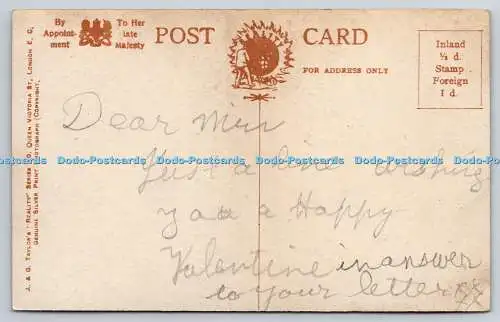 By Appoint-ment
To Her late Majesty
POST CARD
FOR ADDRESS ONLY
Inland
½ d.
Stamp
Foreign
1 d.
J. & G. TAYLOR'S "REALITY" SERIES QUEEN VICTORIA ST, LONDON E. C.
GENUINE SILVER PRINT PHOTOGRAPH (COPYRIGHT).
Dear Miss
Just a line wishing
you a Happy
Valentine in answer
to your letter xx
xx
Dodo-Postcards Dodo-Postcards Dodo-Postcards Dodo-Postcards Dodo-Postcards